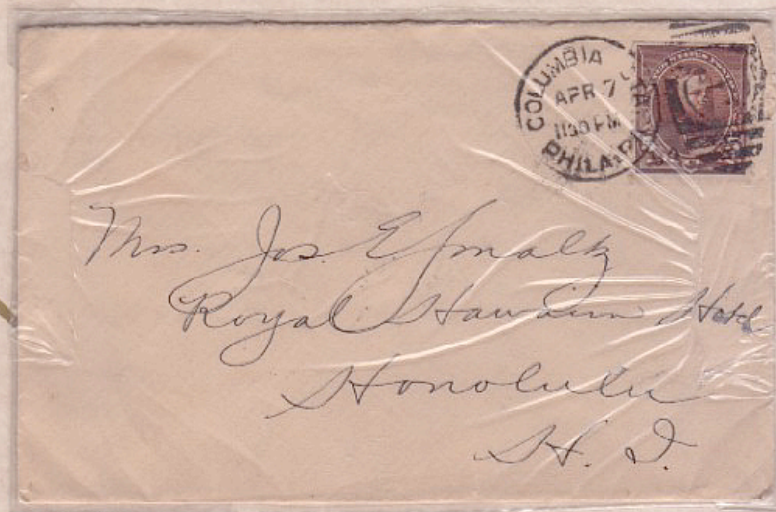 COLUMBIA
APR 7
1130 PM
PHILA. PA
Mrs. Jos. E. Smalk
Royal Hawaiin Hotel
Honolulu
H. I.